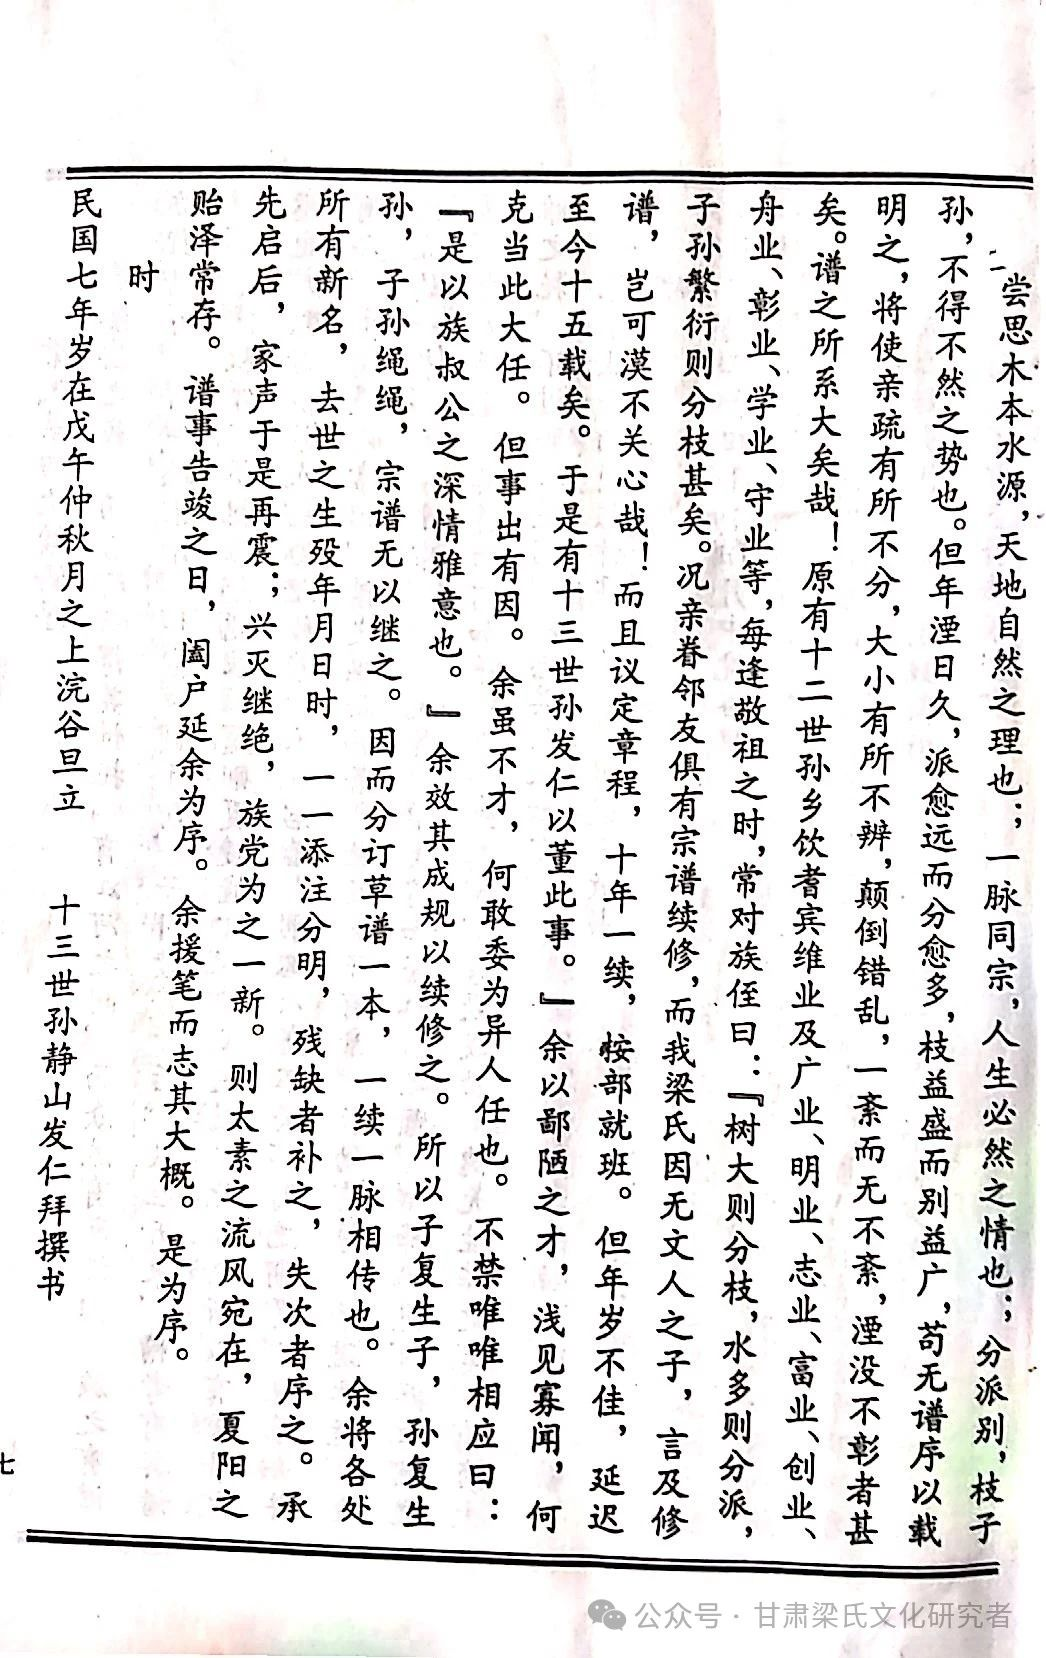 尝思木本水源，天地自然之理也；一脉同宗，人生必然之情也；分派别，枝子
孙，不得不然之势也。但年湮日久，派愈远而分愈多，枝益盛而别益广，苟无谱序以载
明之，将使亲疏有所不分，大小有所不辨，颠倒错乱，一紊而无不紊，湮没不彰者甚
矣。谱之所系大矣哉！原有十二世孙乡饮耆宾维业及广业、明业、志业、富业、创业、
舟业、彰业、学业、守业等，每逢敬祖之时，常对族侄曰：『树大则分枝，水多则分派，
子孙繁衍则分枝甚矣。况亲眷邻友俱有宗谱续修，而我梁氏因无文人之子，言及修
谱，岂可漠不关心哉！而且议定章程，十年一续，按部就班。但年岁不佳，延迟
至今十五载矣。于是有十三世孙发仁以董此事。』余以鄙陋之才，浅见寡闻，何
克当此大任。但事出有因。余虽不才，何敢委为异人任也。不禁唯唯相应曰：
『是以族叔公之深情雅意也。』余效其成规以续修之。所以子复生子，孙复生
孙，子孙绳绳，宗谱无以继之。因而分订草谱一本，一续一脉相传也。余将各处
所有新名，去世之生殁年月日时，一一添注分明，残缺者补之，失次者序之。承
先启后，家声于是再震；兴灭继绝，族党为之一新。则太素之流风宛在，夏阳之
贻泽常存。谱事告竣之日，阖户延余为序。余援笔而志其大概。是为序。
时
民国七年岁在戊午仲秋月之上浣谷旦立 十三世孙静山发仁拜撰书
七
公众号·甘肃梁氏文化研究者